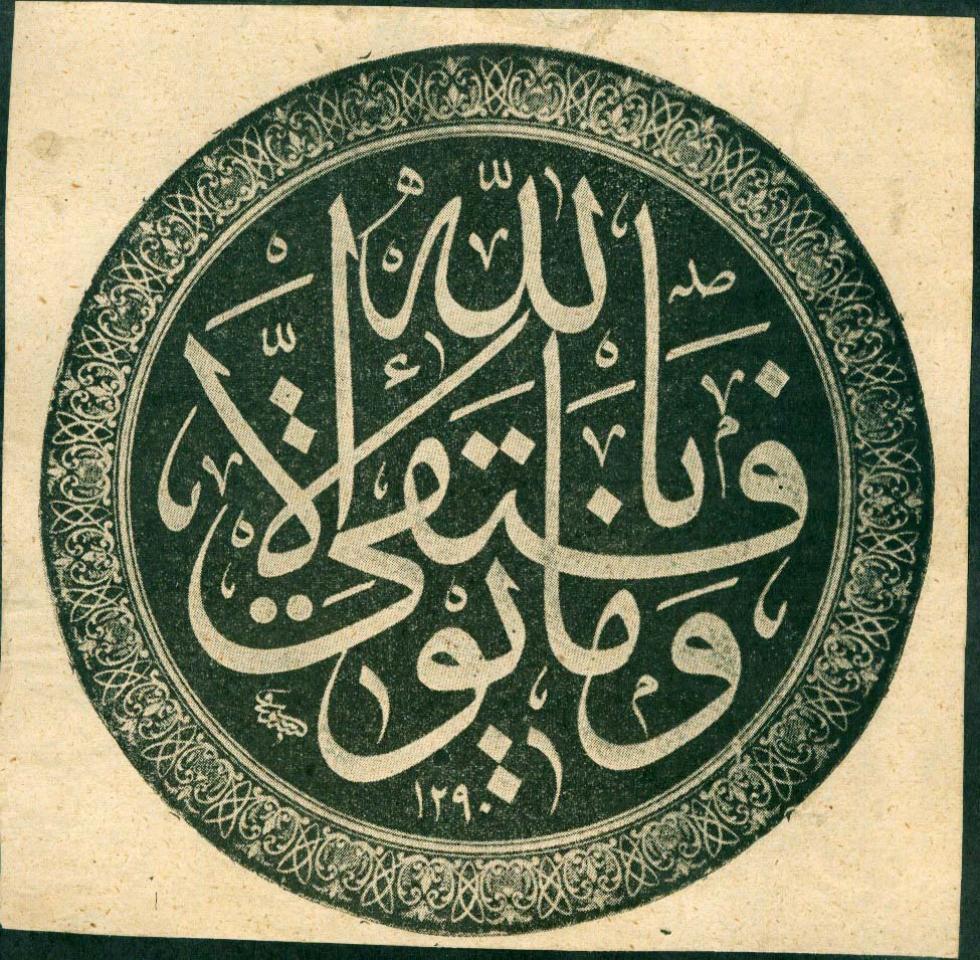 وما توفيقي إلا بالله
١٢٩٠